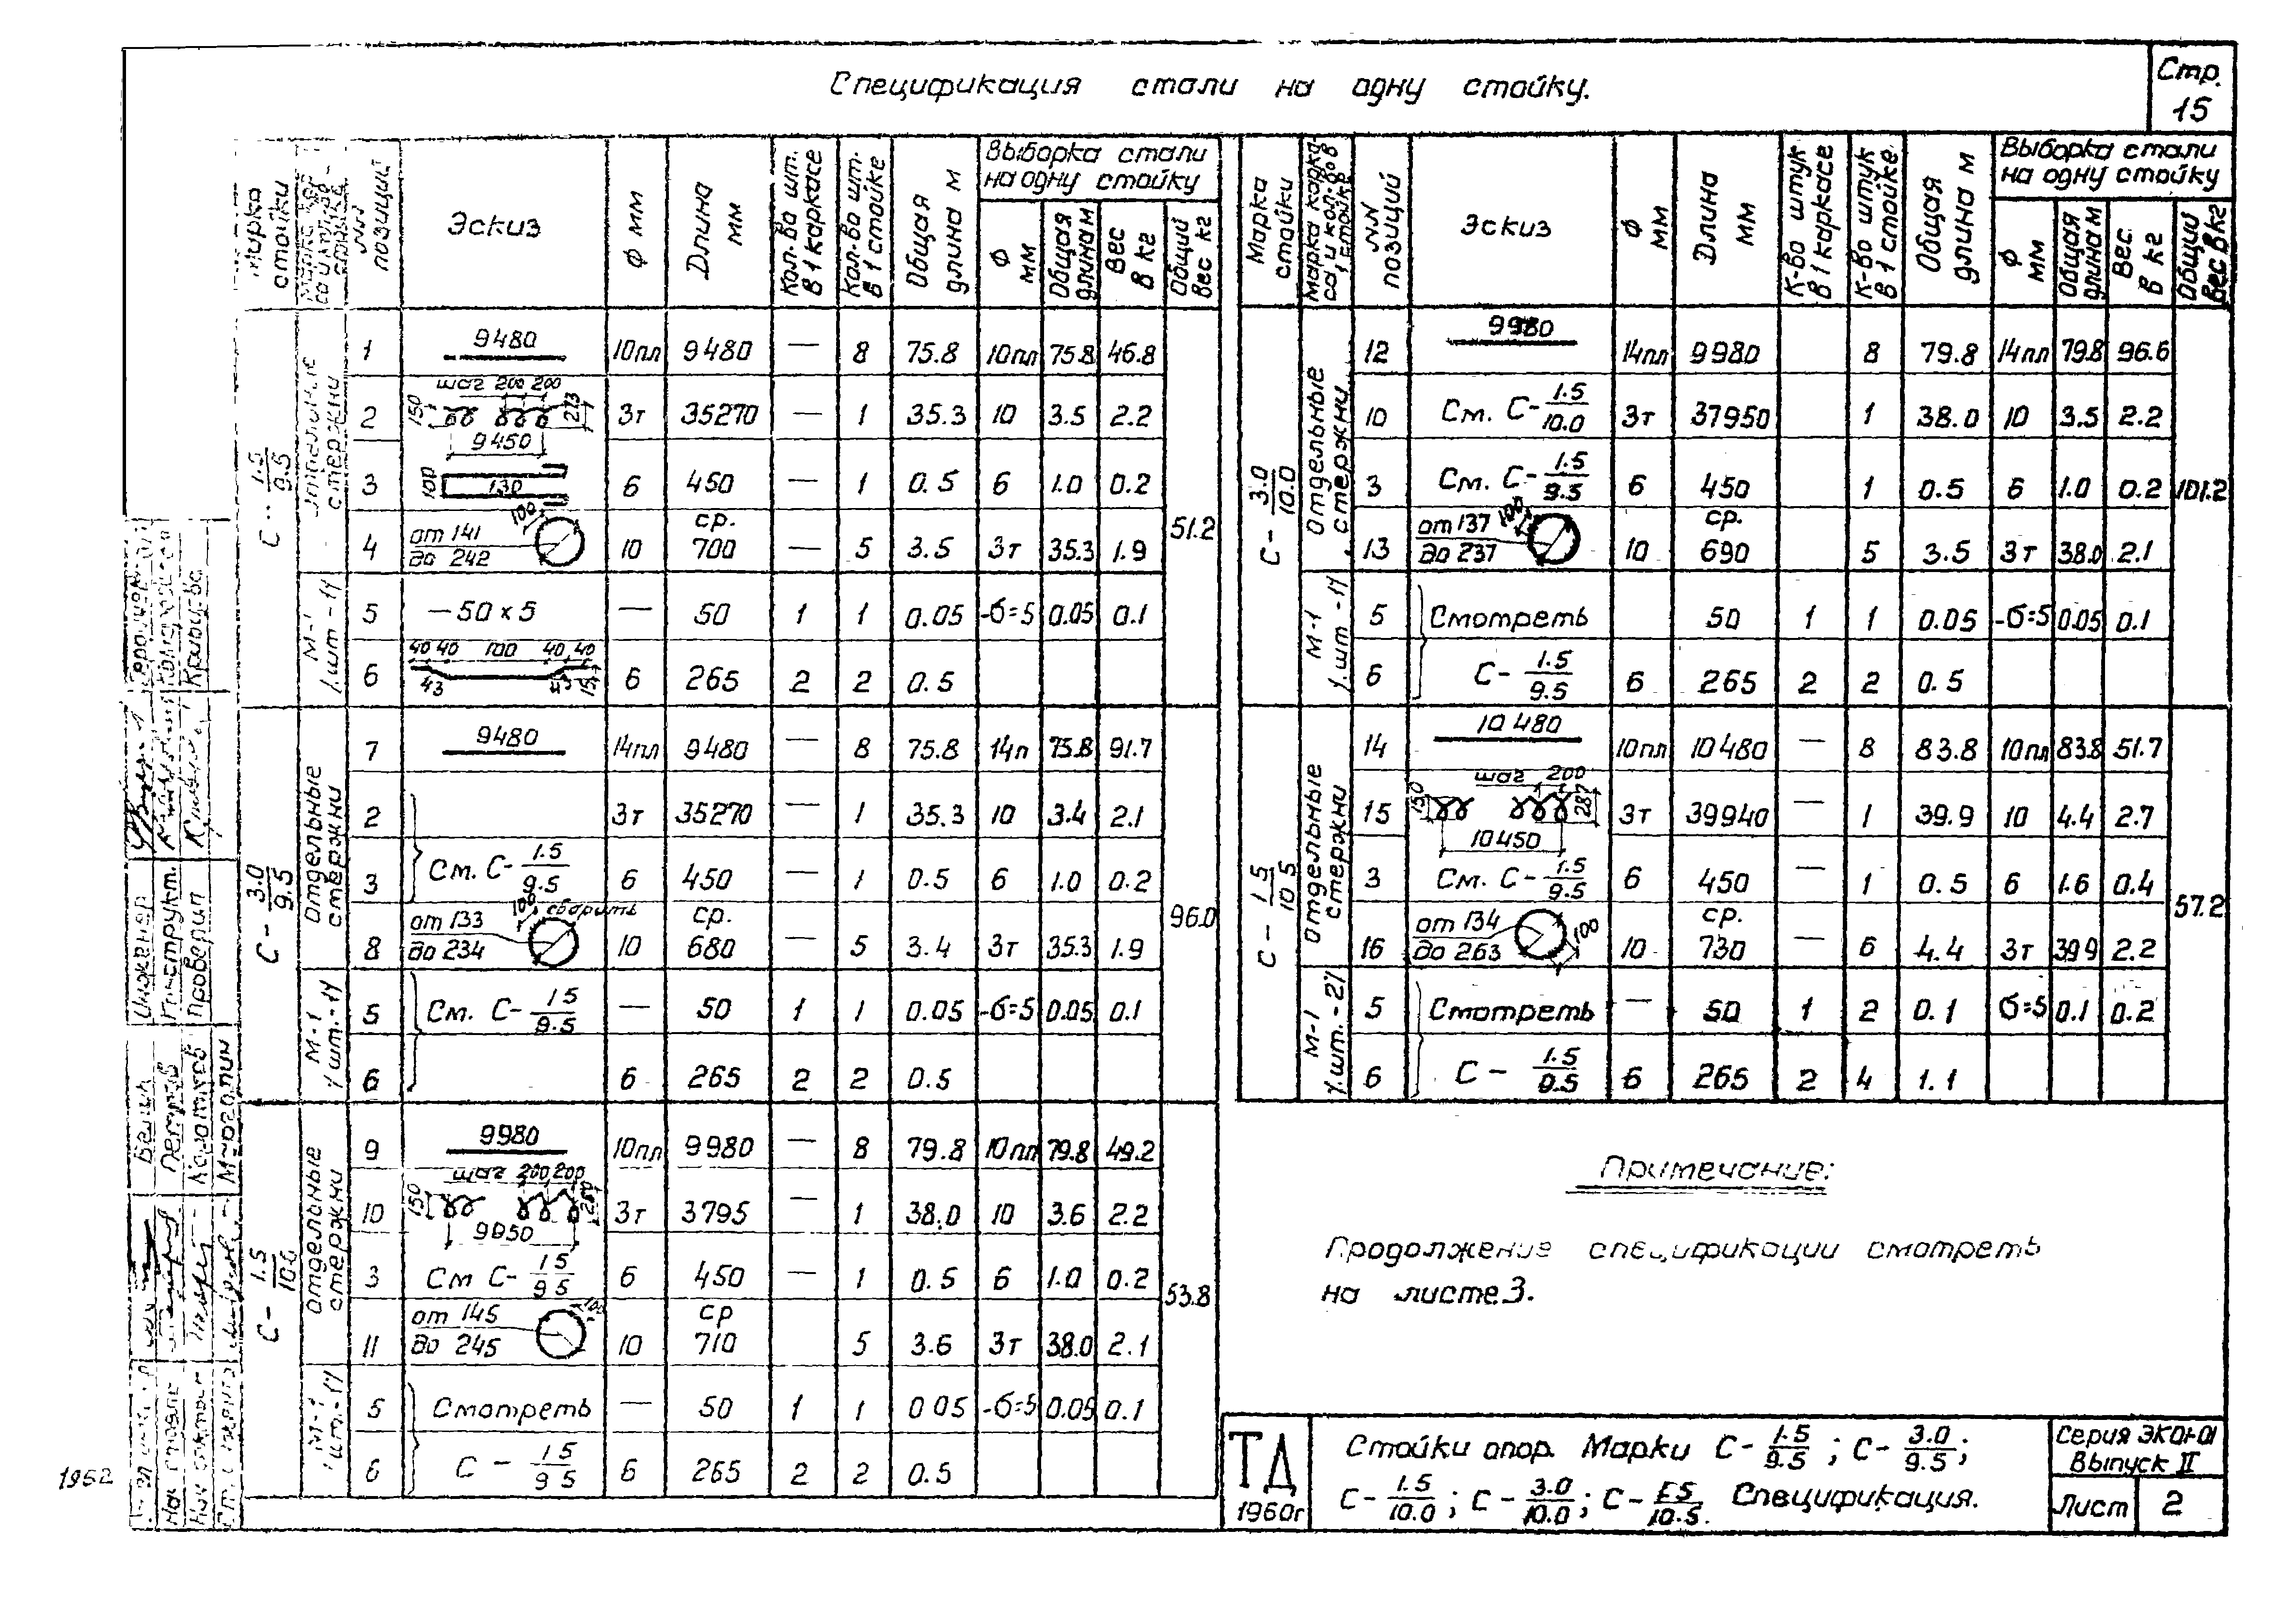 Стр.
15
Спецификация стали на одну стойку.
Марка стойки
NN позиций
Эскиз
ф мм
Длина мм
Кол-во шт. в 1 каркасе
Кол-во шт. в 1 стойке
Общая длина м
Выборка стали на одну стойку
ф мм
Общая длина м
Вес в кг
Общий вес кг
С- 1.5/9.5
Отдельные стержни
1 9480 10пл 9480 — 8 75.8 10пл 75.8 46.8
2 шаг 200 200 150 273 9450 3т 35270 — 1 35.3 10 3.5 2.2
3 100 130 6 450 — 1 0.5 6 1.0 0.2
4 от 141 до 242 100 10 ср. 700 — 5 3.5 3т 35.3 1.9
51.2
М-1 1 шт.
5 — 50 х 5 — 50 1 1 0.05 -б=5 0.05 0.1
6 40 40 100 40 40 43 6 265 2 2 0.5
С- 3.0/9.5
Отдельные стержни
7 9480 14пл 9480 — 8 75.8 14п 75.8 91.7
2 3т 35270 — 1 35.3 10 3.4 2.1
3 См. С- 1.5/9.5 6 450 — 1 0.5 6 1.0 0.2
8 от 133 до 234 100 сварить 10 ср. 680 — 5 3.4 3т 35.3 1.9
96.0
М-1 1 шт.
5 См. С- 1.5/9.5 — 50 1 1 0.05 -б=5 0.05 0.1
6 6 265 2 2 0.5
С- 1.5/10.0
Отдельные стержни
9 9980 10пл 9980 — 8 79.8 10пл 79.8 49.2
10 шаг 200 200 150 9950 3т 3795 — 1 38.0 10 3.6 2.2
3 См С- 1.5/9.5 6 450 — 1 0.5 6 1.0 0.2
11 от 145 до 245 100 10 ср 710 5 3.6 3т 38.0 2.1
53.8
М-1
5 Смотреть — 50 1 1 0.05 -б=5 0.05 0.1
6 С - 1.5/9.5 6 265 2 2 0.5
Марка стойки
Марка каркаса и кол-во в 1 стойке
NN позиций
Эскиз
ф мм
Длина мм
К-во штук в 1 каркасе
К-во штук в 1 стойке
Общая длина м
Выборка стали на одну стойку
ф мм
Общая длина м
Вес в кг
Общий вес в кг
С- 3.0/10.0
Отдельные стержни
12 9980 14пл 9980 8 79.8 14пл 79.8 96.6
10 См. С- 1.5/10.0 3т 37950 1 38.0 10 3.5 2.2
3 См. С- 1.5/9.5 6 450 1 0.5 6 1.0 0.2
101.2
13 от 137 до 237 100 10 ср. 690 5 3.5 3т 38.0 2.1
М-1 1 шт.
5 Смотреть 50 1 1 0.05 -б=5 0.05 0.1
6 С- 1.5/9.5 6 265 2 2 0.5
С- 1.5/10.5
Отдельные стержни
14 10 480 10пл 10480 — 8 83.8 10пл 83.8 51.7
15 шаг 200 150 287 10450 3т 39940 — 1 39.9 10 4.4 2.7
3 См. С- 1.5/9.5 6 450 — 1 0.5 6 1.6 0.4
57.2
16 от 134 до 263 100 10 ср. 730 — 6 4.4 3т 39.9 2.2
М-1
5 Смотреть — 50 1 2 0.1 б=5 0.1 0.2
6 С - 1.5/9.5 6 265 2 4 1.1
Примечание:
Продолжение спецификации смотреть
на листе 3.
ТД
1960г
Стойки опор. Марки С- 1.5/9.5 ; С- 3.0/9.5 ;
С- 1.5/10.0 ; С- 3.0/10.0 ; С- 1.5/10.5. Спецификация.
Серия ЭК-01-01
Выпуск II
Лист 2
Инженер
Проверил
Белый
Петров
1962